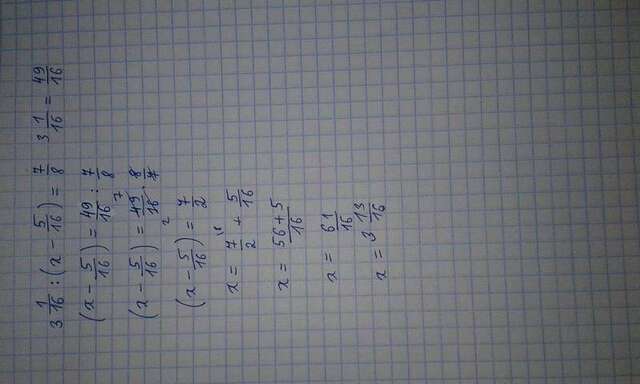 3 1/16 : (x - 5/16) = 7/8    3 1/16 = 49/16
(x - 5/16) = 49/16 : 7/8
(x - 5/16) = 49/16 · 8/7    7    2
(x - 5/16) = 7/2
x = 7/2 + 5/16
x = 56+5/16
x = 61/16
x = 3 13/16